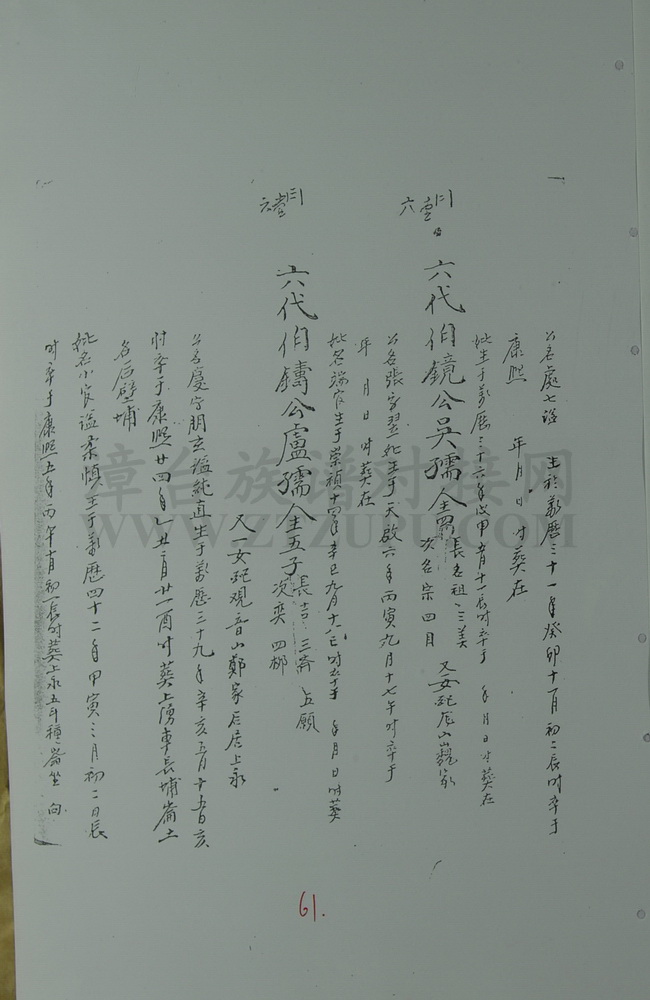 公名處七諡 生於萬曆三十一年癸卯十一月初二辰時卒于
康熙 年月日 時葬在
妣生于萬曆三十六年戊甲 月十一辰時卒于 年月日時葬在
六 房
六代伯鏡公吳孺人 長名祖 三美
次名宗 四目 又女配 山魏家
公名張字翌 生于天啟六年丙寅九月十七午時卒于
年 月 日 時葬在
妣名端官生于崇禎十四年辛巳九月十八 時卒于 年月日時葬
六房
六代伯鑄公盧孺人五子 長吉 三齋 五願
次奕 四柳
又一女配觀音山鄭家 居上永
公名慶字朋 諡純直生于萬曆三十九年辛亥五月十五日亥
時卒于康熙廿四年乙丑二月廿一酉時葬上湧車長埔崙土
名后壁埔
妣名小官諡柔慎生于萬曆四十二年甲寅三月初二日辰
時卒于康熙五年丙午 月初一辰時葬上永五斗種崙坐 向
61.
漳台族譜對接网
WWW.ZTZUPU.COM